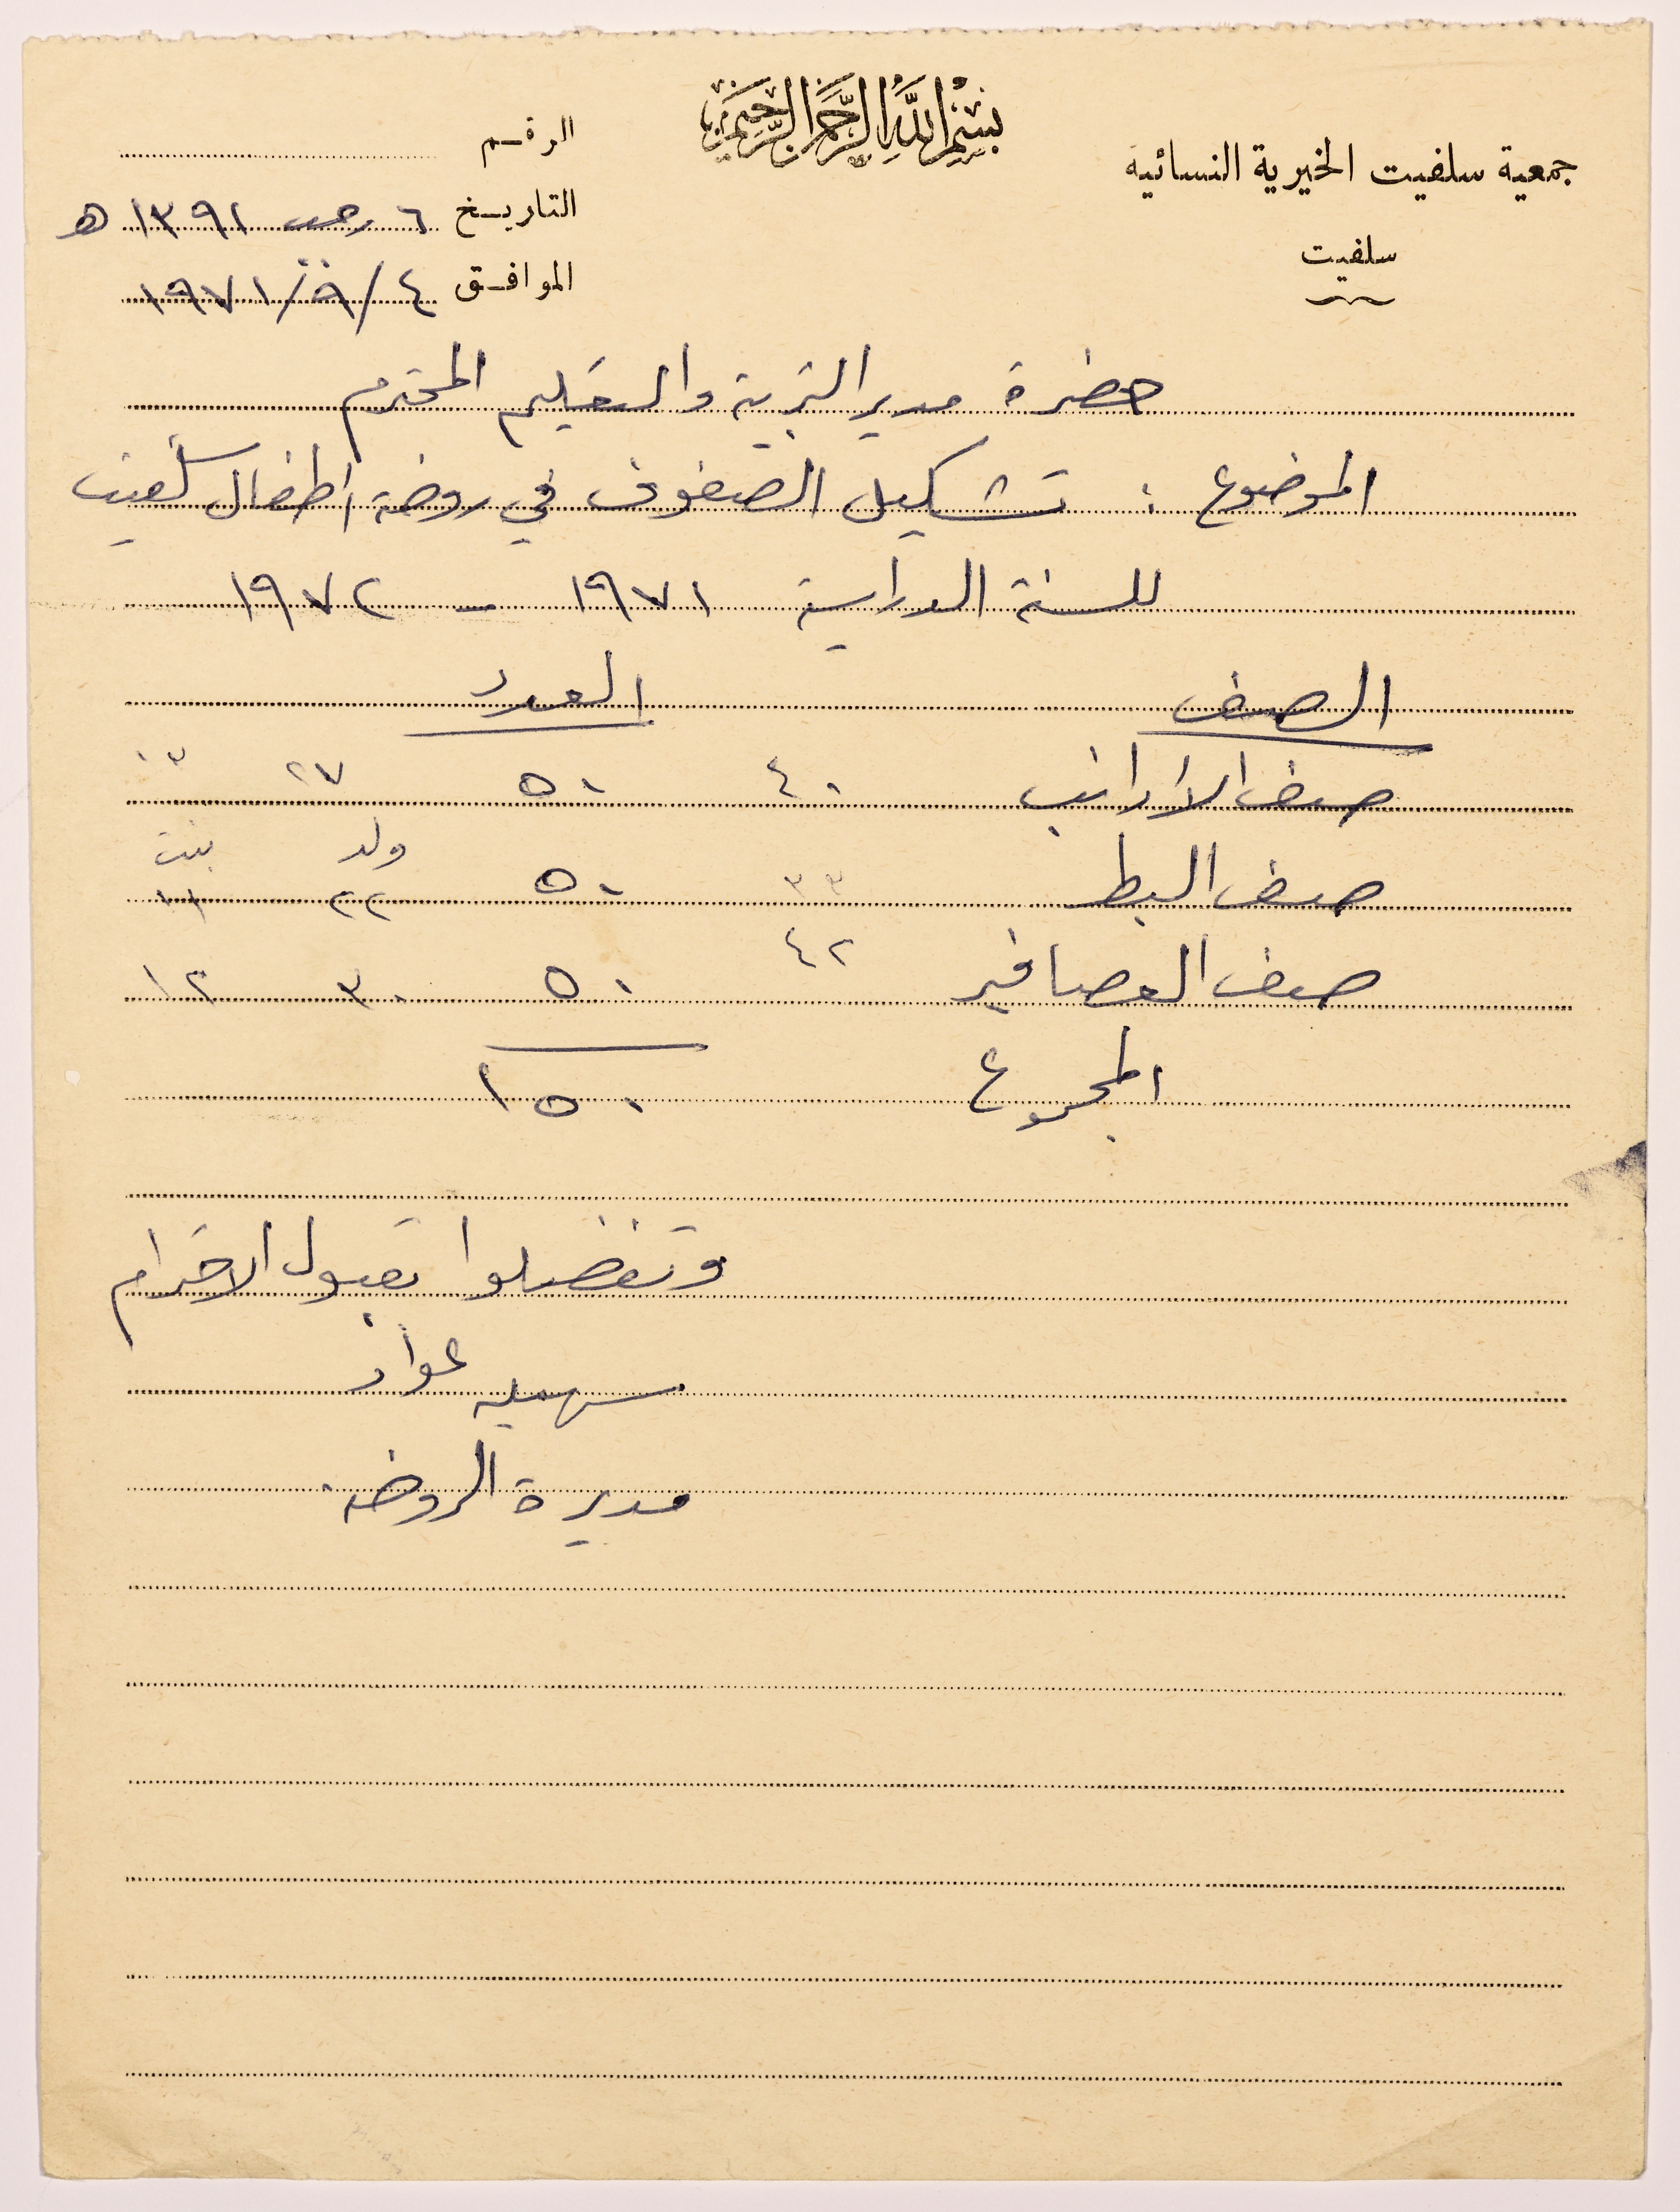 بسم الله الرحمن الرحيم
جمعية سلفيت الخيرية النسائية
سلفيت
الرقم
التاريخ ٦ رجب ١٣٩١ هـ
الموافق ٤/٩/١٩٧١
حضرة مدير التربية والتعليم المحترم
الموضوع : تشكيل الصفوف في روضة اطفال سلفيت
للسنة الدراسية ١٩٧١ - ١٩٧٢
الصف العدد
صف الارانب ٤٠ ٥٠ ٢٧ ١٣
ولد بنت
صف البط ٣٣ ٥٠ ٢٢ ١١
صف العصافير ٤٢ ٥٠ ٣٠ ١٢
المجموع ١٥٠
وتفضلوا بقبول الاحترام
سهيله عواد
مديرة الروضه